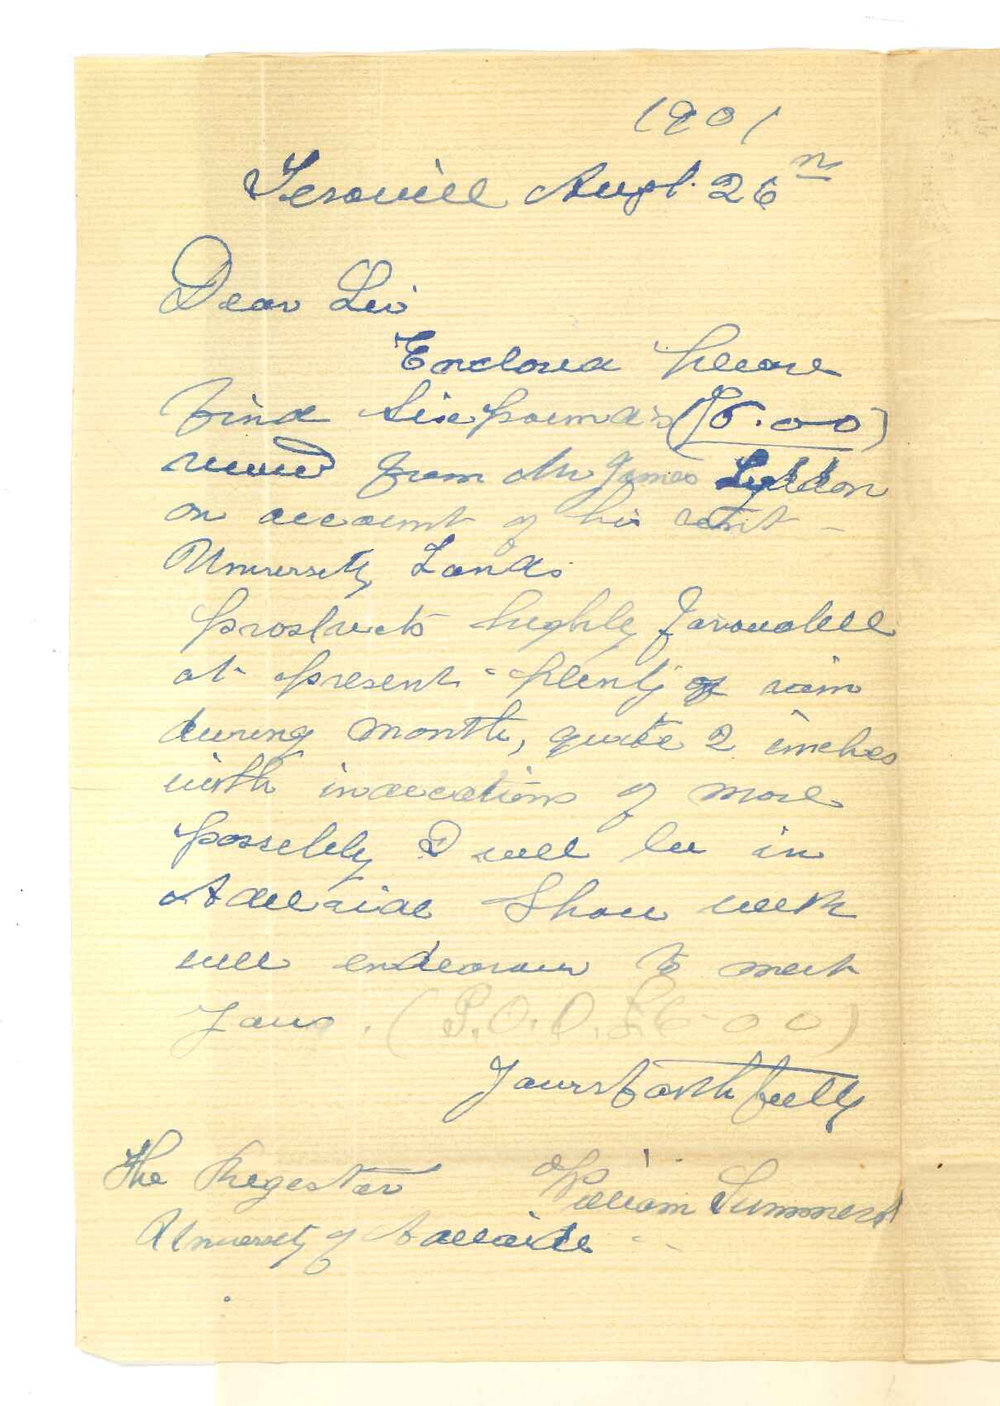 1901
Yesowill Augt. 26th
Dear Sir
Enclosed please
find Six pounds (£6.00)
recived from Mr James Lyddon
on account of his rent -
University Lands
prospects highly favourable
at present - plenty of rain
during month, quite 2 inches
with indications of more
possibly I will be in
Adelaide Show week
will endeavour to meet
you. (P.O.O. £6-00)
Yours faithfully
William Summers
The Register
University of Adelaide